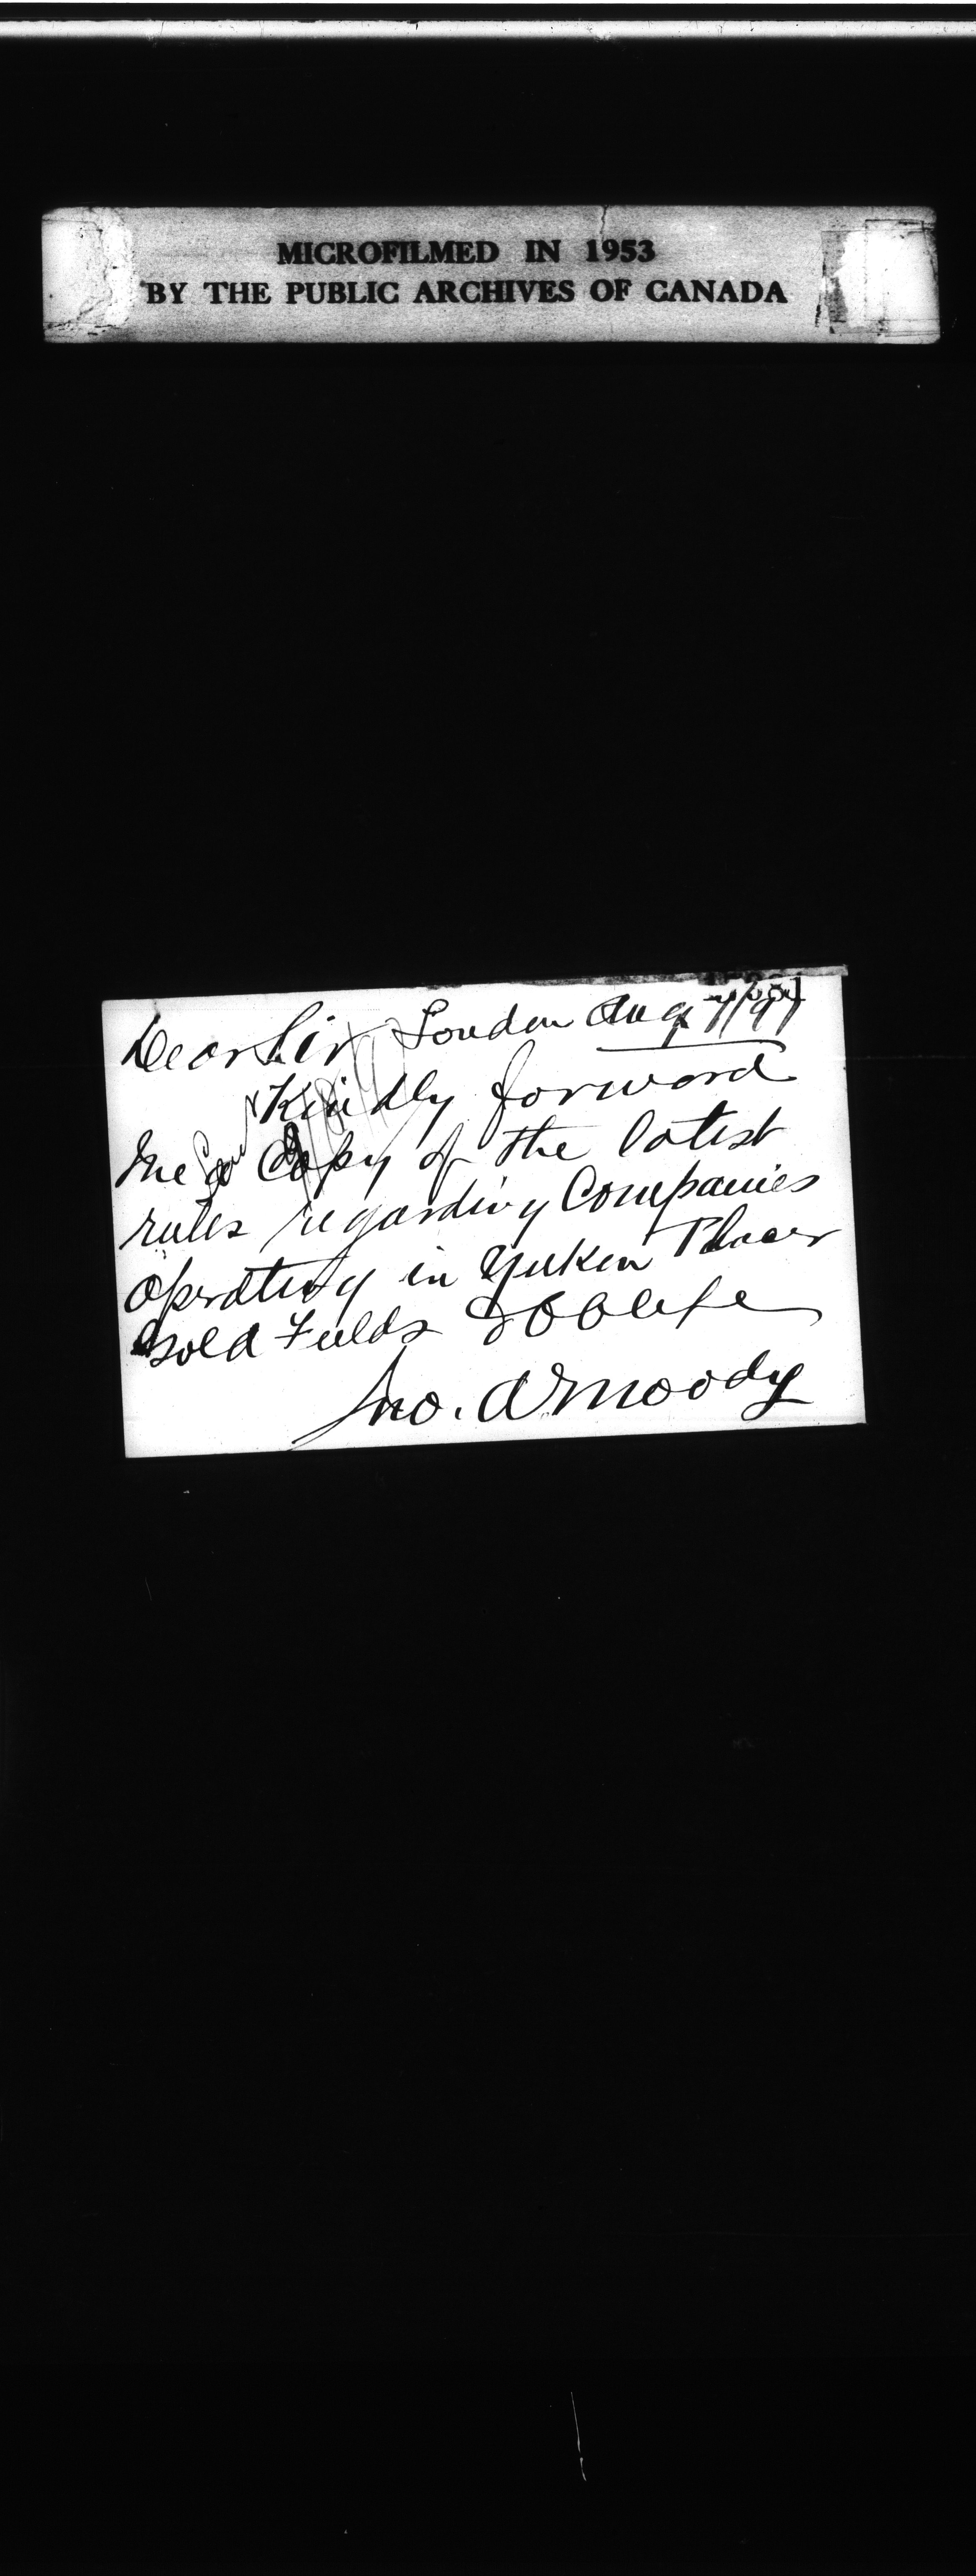 MICROFILMED IN 1953
BY THE PUBLIC ARCHIVES OF CANADA
Dear Sir London Aug 7/97
Kindly forward
me a Copy of the latest
rules regarding Companies
operating in Yukon Placer
Gold Fields & Oblige
Jno. A Moody